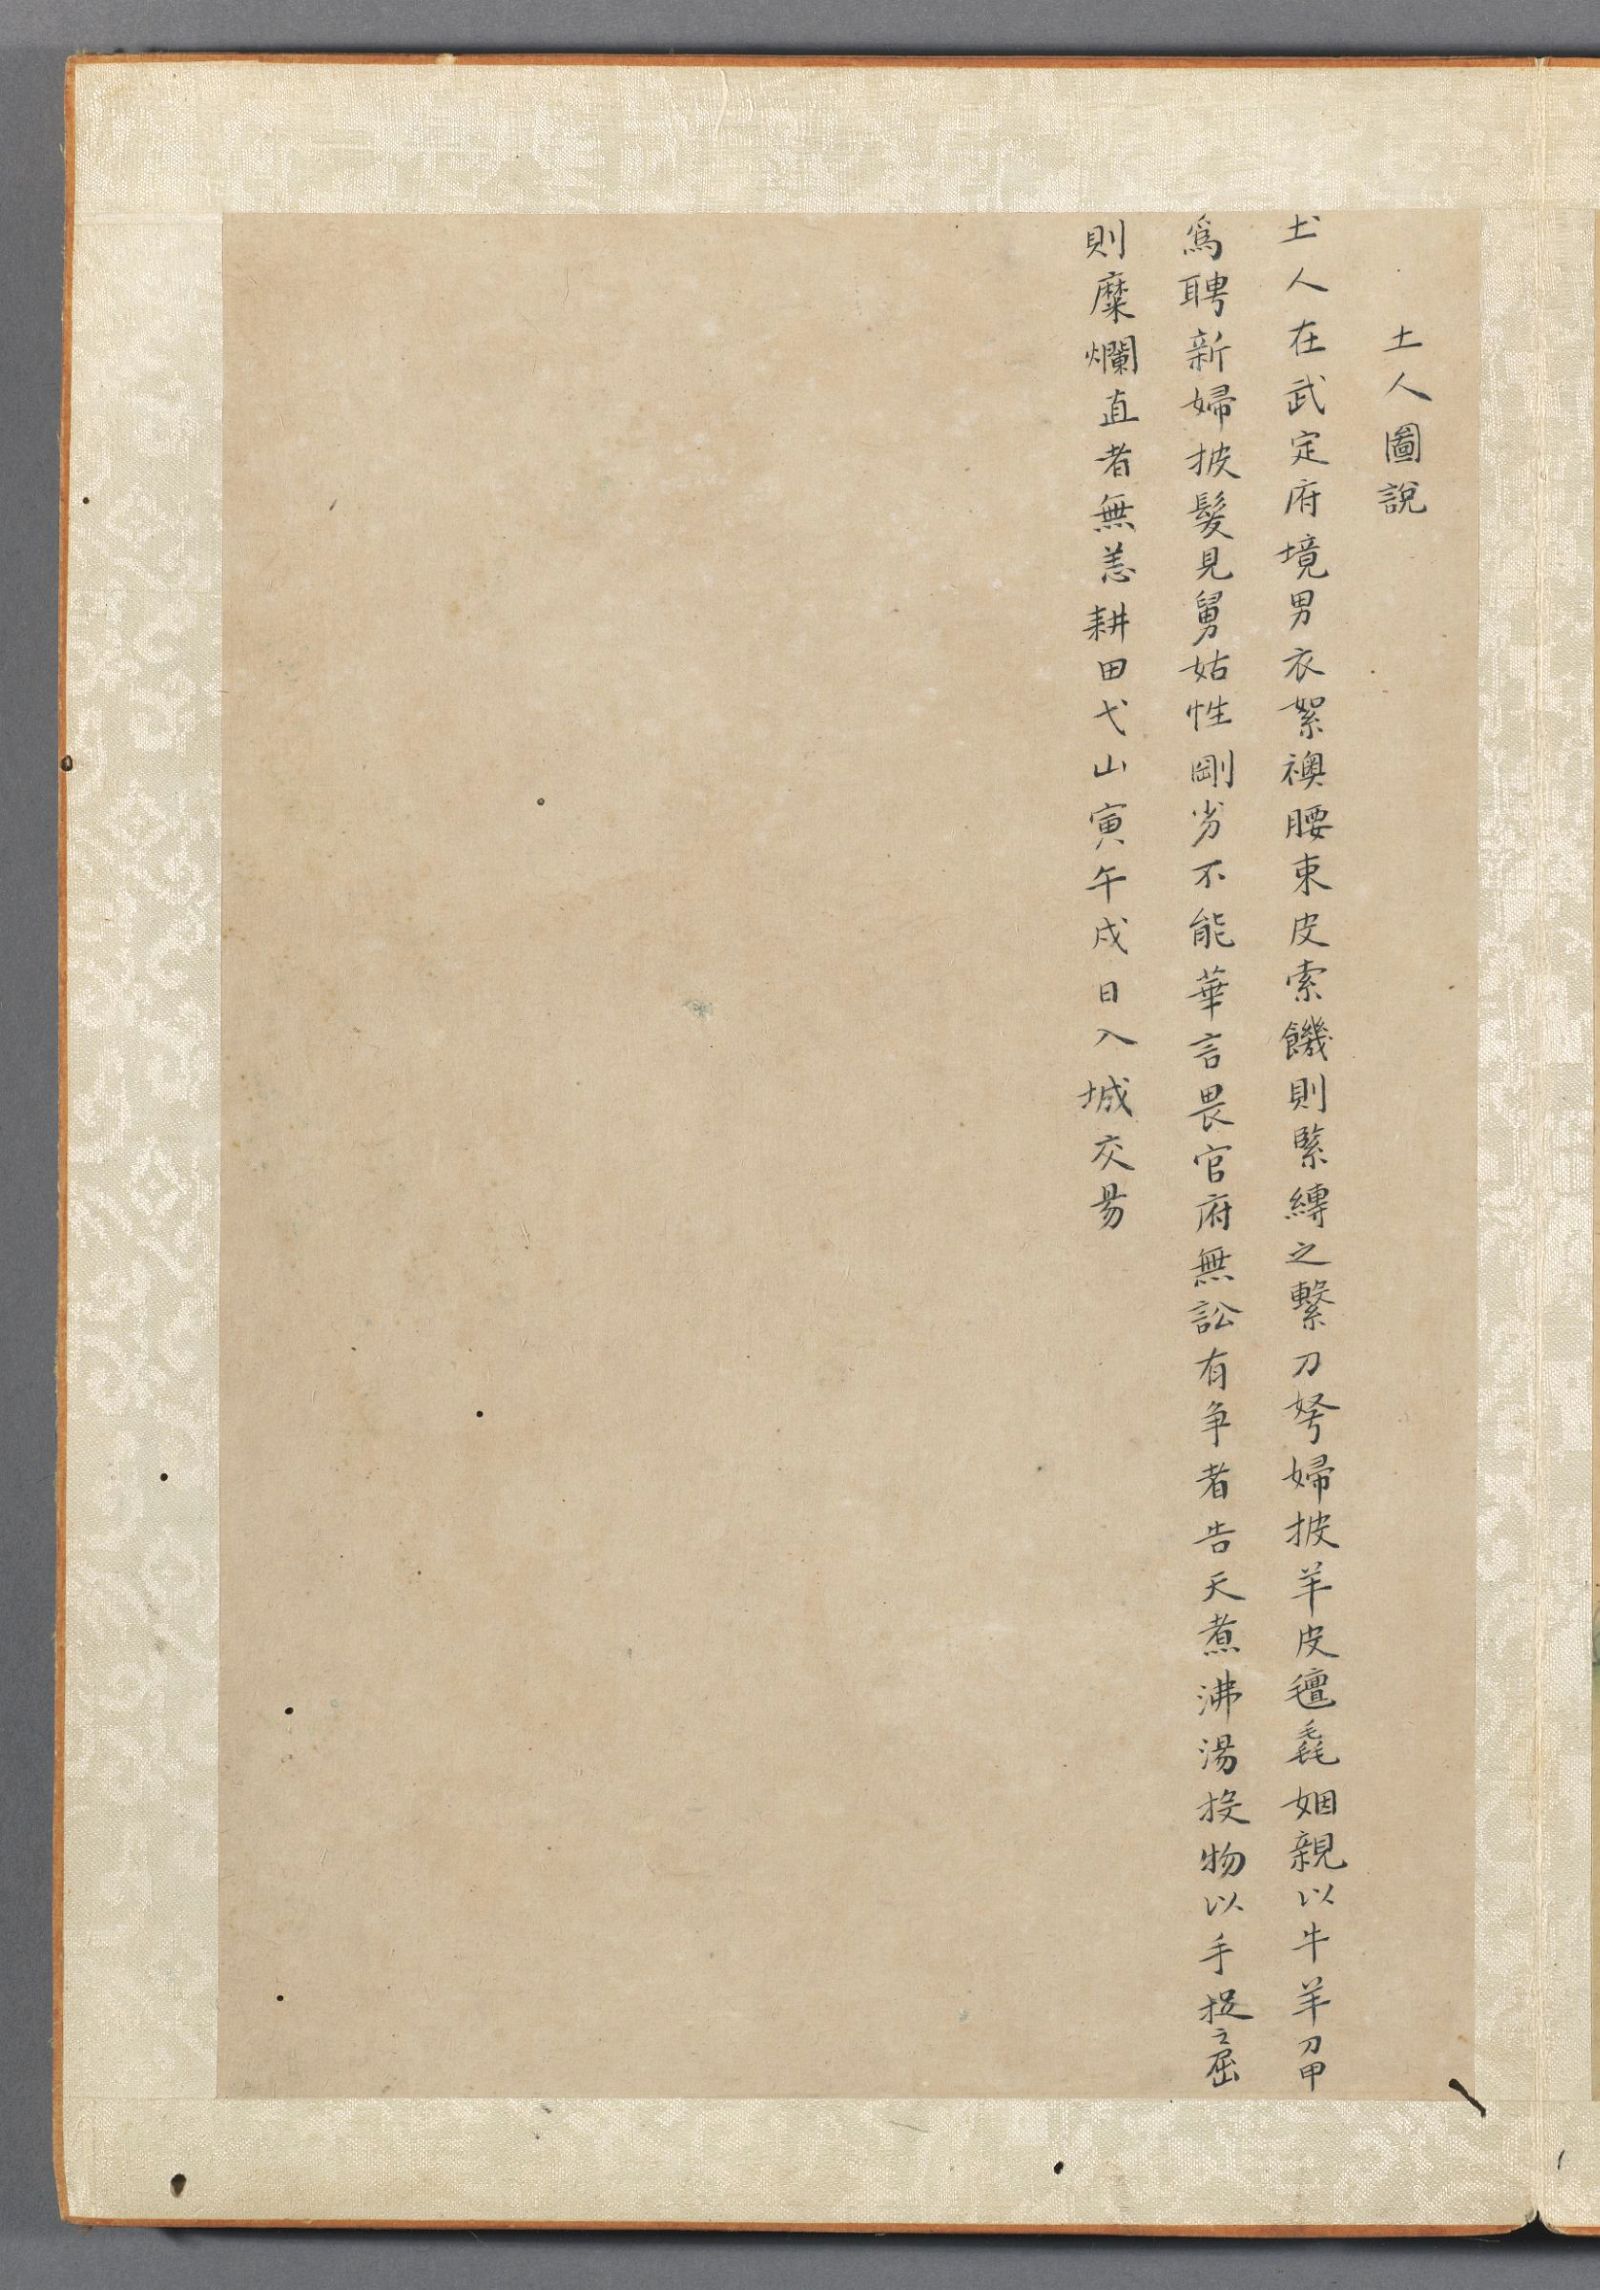 土人圖說
土人在武定府境男衣絮襖腰束皮索饑則緊縛之繫刀弩婦披羊皮氊毳姻親以牛羊刀甲
為聘新婦披髮見舅姑性剛劣不能華言畏官府無訟有爭者告天煮沸湯投物以手捉之屈
則糜爛直者無恙耕田弋山寅午戌日入城交昜